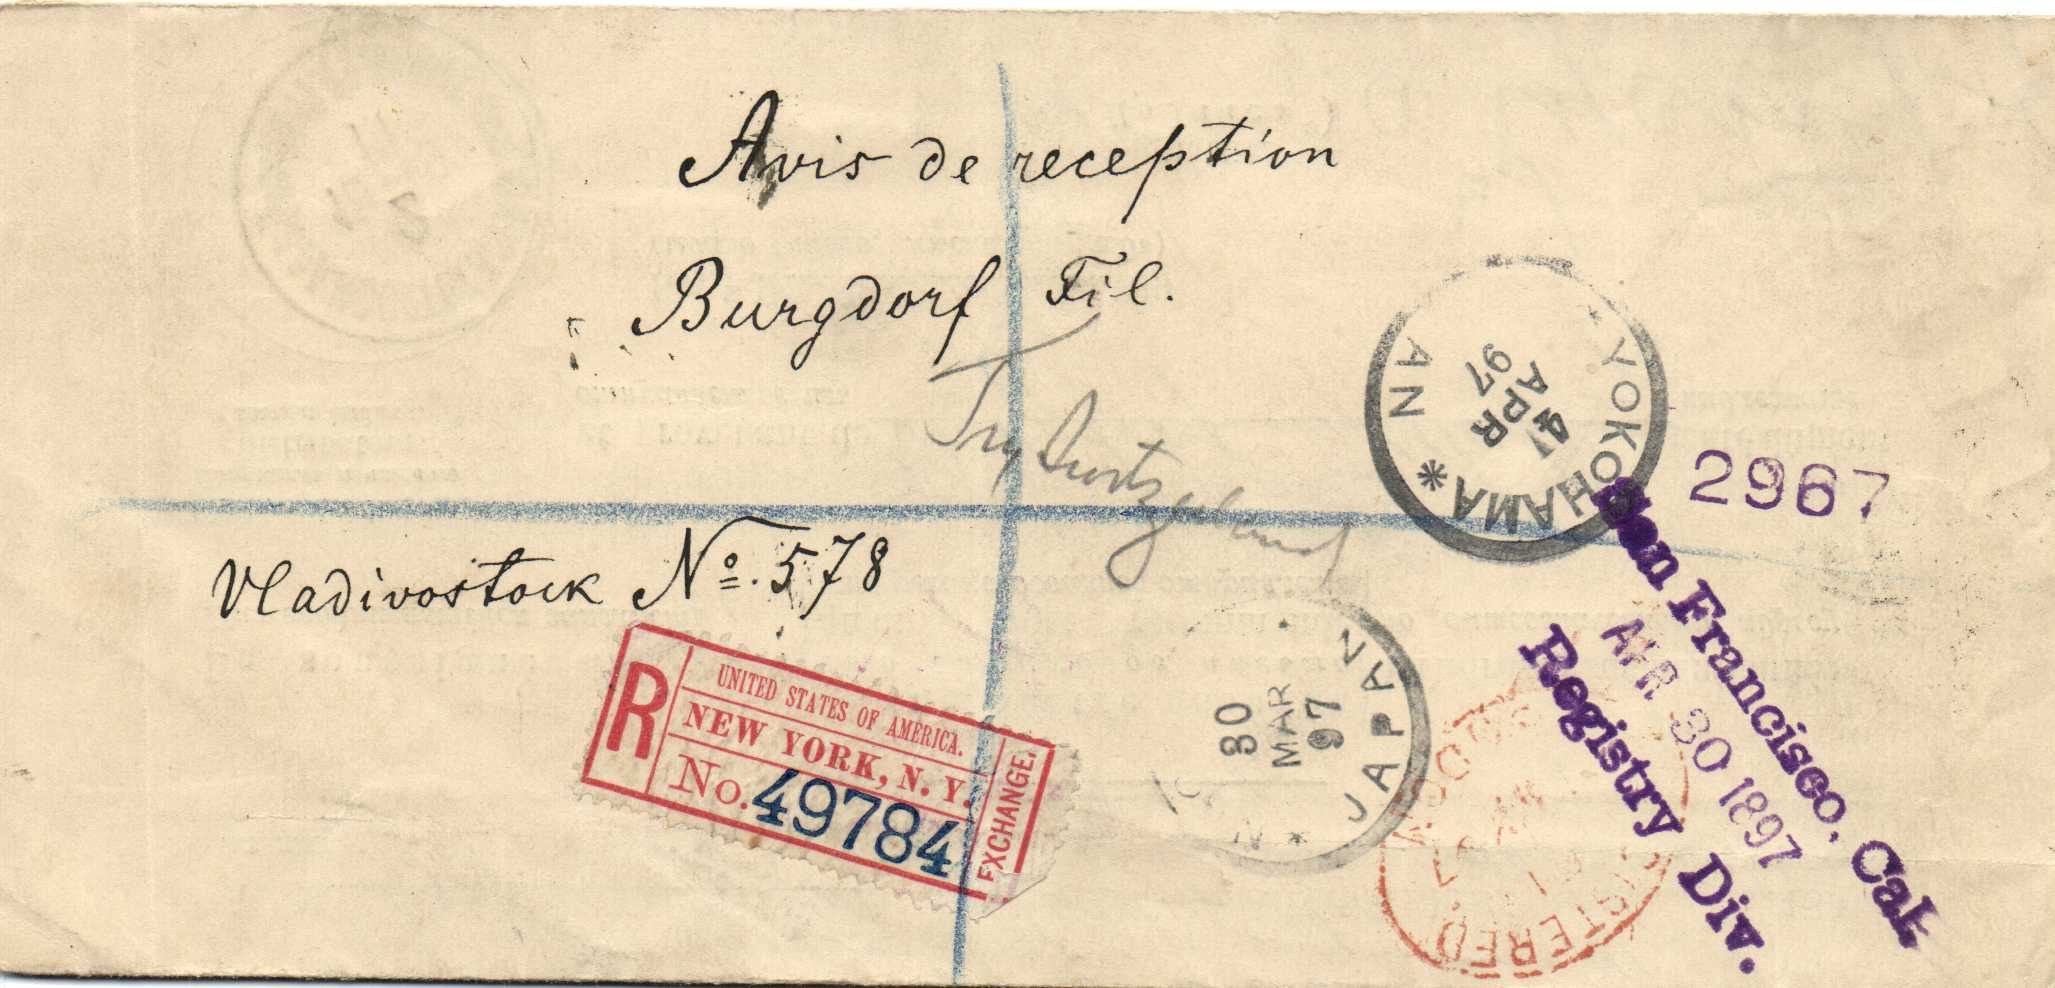 Avis de reception
Burgdorf Fil.
Try Switzerland
YOKOHAMA
4 APR 97
2967
Vladivostock Nº. 578
R
UNITED STATES OF AMERICA.
NEW YORK, N. Y.
No. 49784
EXCHANGE.
JAPAN
30 MAR 97
San Francisco, Cal.
APR 30 1897
Registry Div.